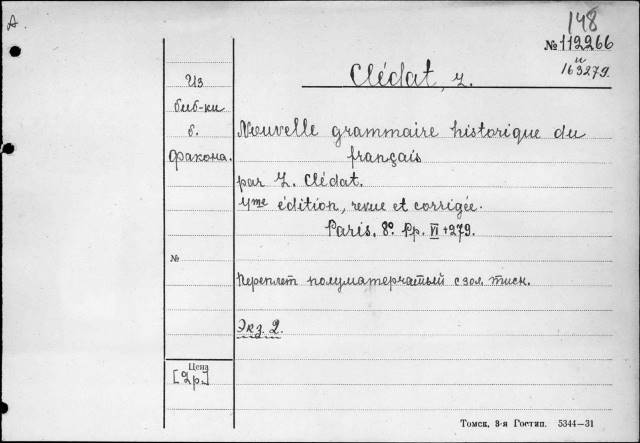 A
148
№ 112266
и
163279.
Clédat, L.
Из
биб-ки
б.
Факона.
Nouvelle grammaire historique du
français
par L. Clédat.
4me édition, revue et corrigée.
Paris. 8°. Pp. VI + 279.
№
Переплет полуматерчатый с зол. тисн.
Экз. 2.
Цена
[2р.]
Томск, 3-я Гостип. 5344—31